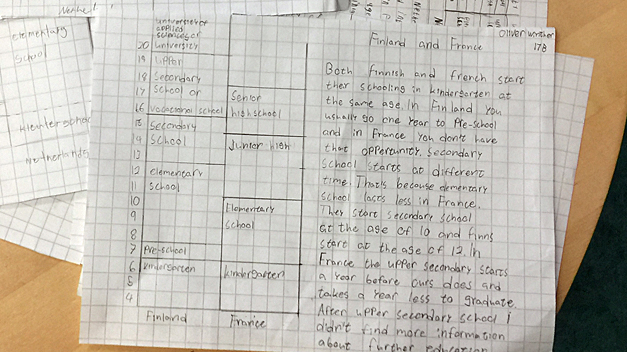 elementary
school
Netherlands
universities of
applied
sciences or
20 university
19 upper
18 secondary
17 school or
16 vocational school
15 secondary
14 school
13
12 elementary
11 school
10
9
8
7 pre-school
6 kindergarten
5
4
Finland
Senior
highschool
Junior high
Elementary
school
kindergarten
France
Oliver
17B
Finland and France
Both finnish and french start
ther schooling in kindergarten at
the same age. In Finland you
usually go one year to Pre-school
and in France you don't have
that oppertunity. Secondary
school starts at different
time. Thats because elementary
school lasts less in France.
They start secondary school
at the age of 10 and finns
start at the age of 12. In
France the upper secondary starts
a year before ours does and
takes a year less to graduate.
After upper secondary school i
didn't find more information
about further education